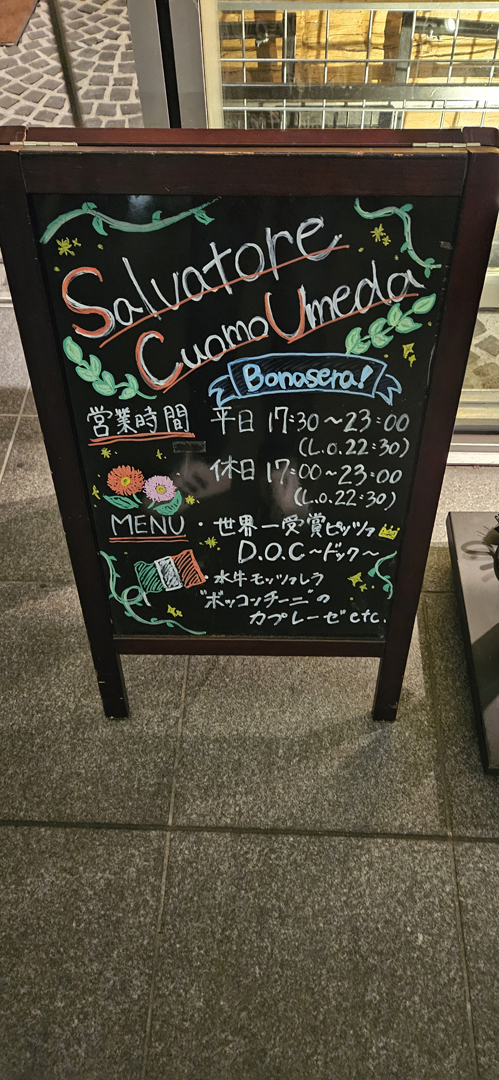 Salvatore
Cuomo Umeda
Bonasera!
営業時間 平日 17:30～23:00
(L.o.22:30)
休日 17:00～23:00
(L.o.22:30)
MENU ・世界一受賞ピッツァ
D.O.C～ドック～
・水牛モッツァレラ
"ボッコンチーニ"の
カプレーゼetc.